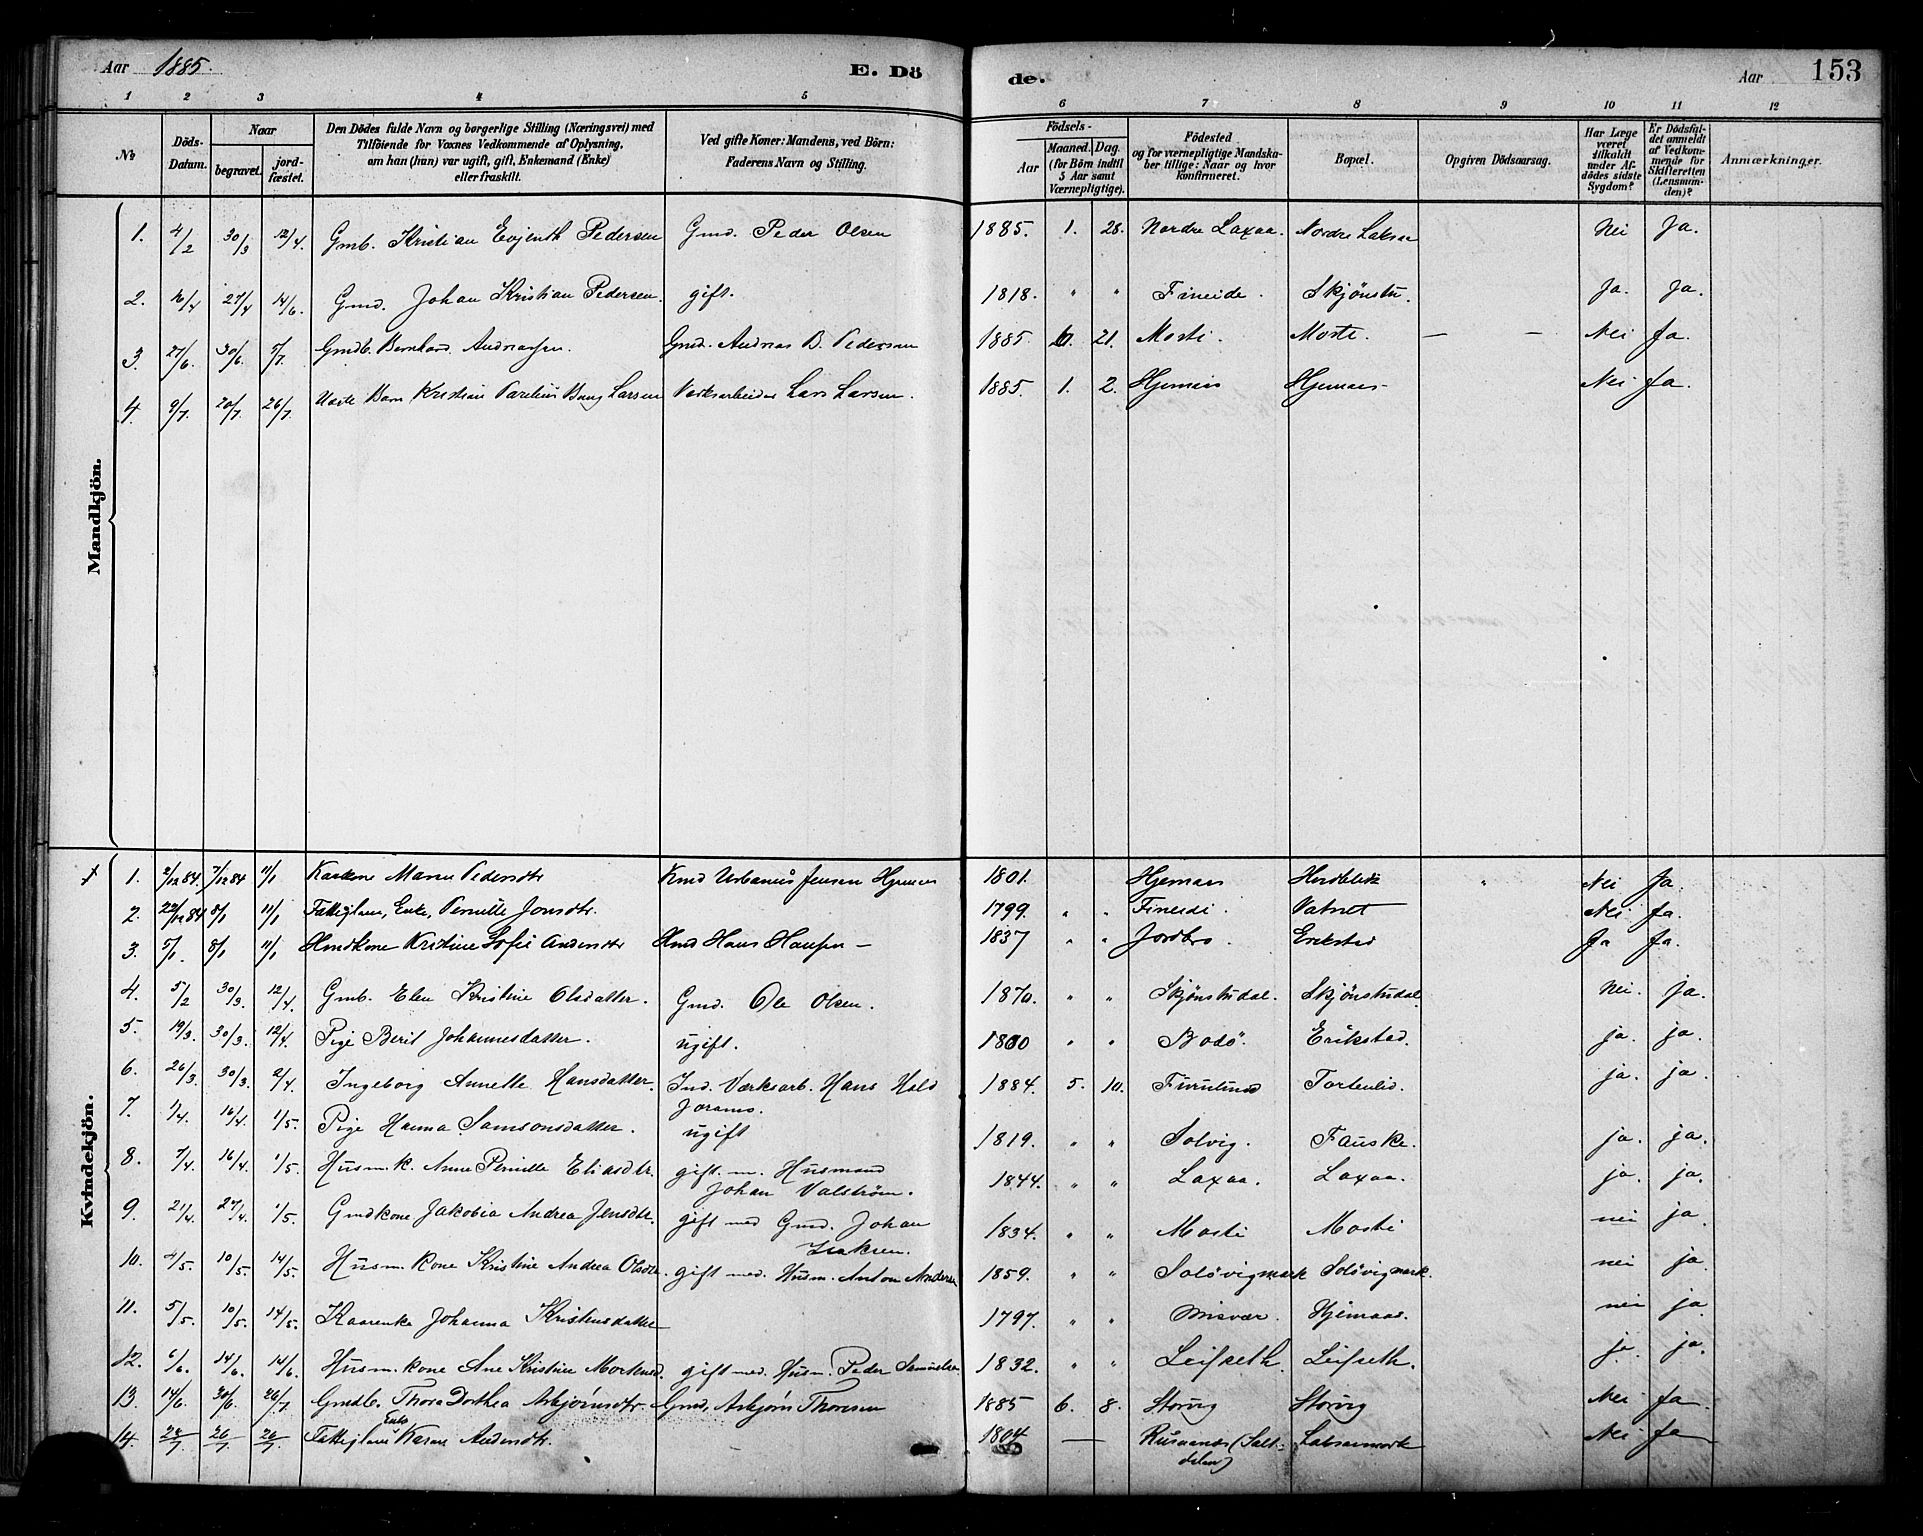 Aar 1885. E. Dö de. Aar 153
1 2 3 4 5 6 7 8 9 10 11 12
No
Döds-Datum.
Naar
begravet.
jord-fæstet.
Den Dödes fulde Navn og borgerlige Stilling (Næringsvei) med
Tilföiende for Voxnes Vedkommende af Oplysning,
om han (hun) var ugift, gift, Enkemand (Enke)
eller fraskilt.
Ved gifte Koner: Mandens, ved Börn:
Faderens Navn og Stilling.
Födsels-
Aar
Maaned. Dag.
(for Börn indtil
5 Aar samt
Værnepligtige).
Födested
og for værnepligtige Mandska-
ber tillige: Naar og hvor
konfirmeret.
Bopæl.
Opgiven Dödsaarsag.
Har Læge
været
tilkaldt
under Af-
dödes sidste
Sygdom?
Er Dödsfal-
det anmeldt
af Vedkom-
mende for
Skifteretten
(Lensman-
den)?
Anmærkninger.
Mandkjön.
1. 4/2 30/3 12/4. Gmb. Kristian Evjenth Pedersen Gmd. Peder Olsen 1885. 1. 28. Nordre Laxaa. Nordre Laksaa Nei Ja.
2. 16/4 27/4 14/6. Gmd. Johan Kristian Pedersen. gift. 1818. " " Fineide. Skjönstu. Ja. Ja.
3. 27/6. 30/6. 5/7. Gmdb. Bernhard Andreassen. Gmd. Andreas B. Pedersen 1885. 6. 21. Mosti. Moste. — — Nei Ja.
4. 9/7. 20/7. 26/7. Uægte Barn Kristian Parelius Larsen Værksarbeider Lars Larsen. 1885. 1. 2. Hjemaas Hjemaas Nei Ja.
Kvindekjön.
1. 2/12 84. 7/12 84 11/1 Maren Pedersdtr Kmd Urbanus Jensen Hjemaas 1801. Hjemaas " Nei Ja.
2. 22/12 84 8/1 11/1 Fattiglem, Enke, Pernille Jonsdtr. 1799. " " Fineidi. Vatnet Nei Ja.
3. 5/1. 8/1 11/1 Hmdkone Kristine Sofie Andersdtr Hmd Hans Hansen — 1837 " " Jordbro. Erikstad Ja Ja.
4. 5/2 30/3. 12/4 Gmb. Elen Kristine Olsdatter. Gmd. Ole Olsen. 1870. " " Skjönstudal. Skjönstudal. Nei. ja.
5. 19/3. 30/3. 12/4. Pige Berit Johannesdatter. ugift. 1800 " " Bodö. Erikstad. ja. ja.
6. 26/3. 30/3. 2/4. Ingeborg Annette Hansdatter. Ind. Værksarb. Hans Hald
Jorams. 1884. 5. 10. Furulund Tortenlid. ja. ja.
7. 1/4. 16/4 1/5. Pige Hanna Samsonsdatter. ugift 1819. " " Solvig. Fauske. ja. ja.
8. 7/4 16/4. 1/5. Husm.k. Anne Pernille Eliasdtr. gift. m. Husmand
Johan Valström. 1844. " " Laxaa. Laxaa. ja. ja.
9. 21/4. 27/4. 1/5. Gmdkone Jakobia Andrea Jensdtr. gift med Gmd. Johan
1834. " " Mosti Mosti nei ja.
10. 4/5. 10/5. 14/5. Husm. kone Kristine Andrea Olsdtr. gift med. Husm. Anton Andersen 1859. " " Solövigmark Solövigmark. nei ja.
11. 5/5. 10/5. 14/5. Kaarenke Johanna Kristensdatter 1797. " " Misvær. Hjemaas. nei ja
12. 6/6. 14/6. 14/6. Husm. kone Ane Kristine Mortensd. gift med. Husm. Peder Samuelsen 1832. " " Leifseth. Leifseth. ja. ja.
13. 14/6. 30/6. 26/7. Gmdb. Thora Dorthea Asbjörnsdtr. Gmd. Asbjörn Thoresen 1885 6. 8. Storvig Storvig Nei Ja.
14. 28/7. 26/7. 26/7. Fattiglem Enke Karen Andersdtr. 1804 — Rusaanes (Salt-
dalen) Laksaamark Nei Ja